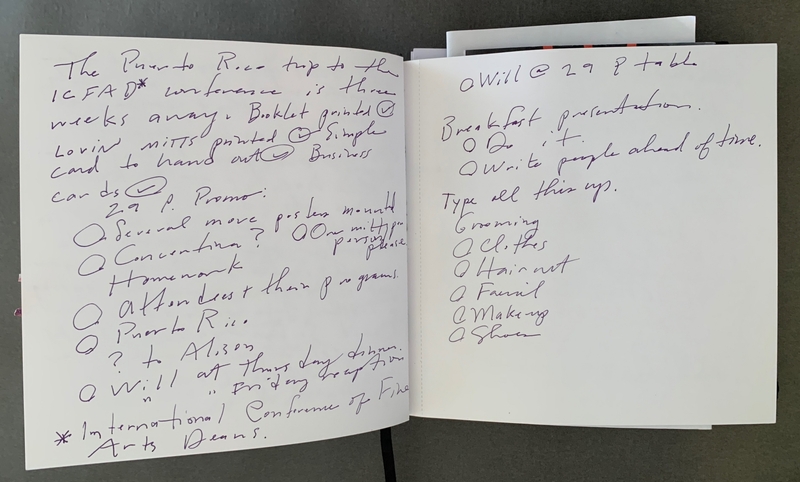 The Puerto Rico trip to the
ICFAD* conference is three
weeks away. Booklet printed ✓
Lovin mitts printed ✓ Simple
card to hand out ✓ Business
cards ✓
29 P. Promo:
○ Several more posters mounted
○ Convention? ○ One mitt per
person please
Homework
○ Attendees + their programs.
○ Puerto Rico
? to Alison
○ Will at Thursday dinner.
" " Friday reception
* International Conference of Fine
Arts Deans.
○ Will @ 29 P table
Breakfast presentation.
○ Do it.
○ Write people ahead of time.
Type all this up.
Grooming
○ Clothes
○ Haircut
○ Facial
○ Makeup
○ Shoes